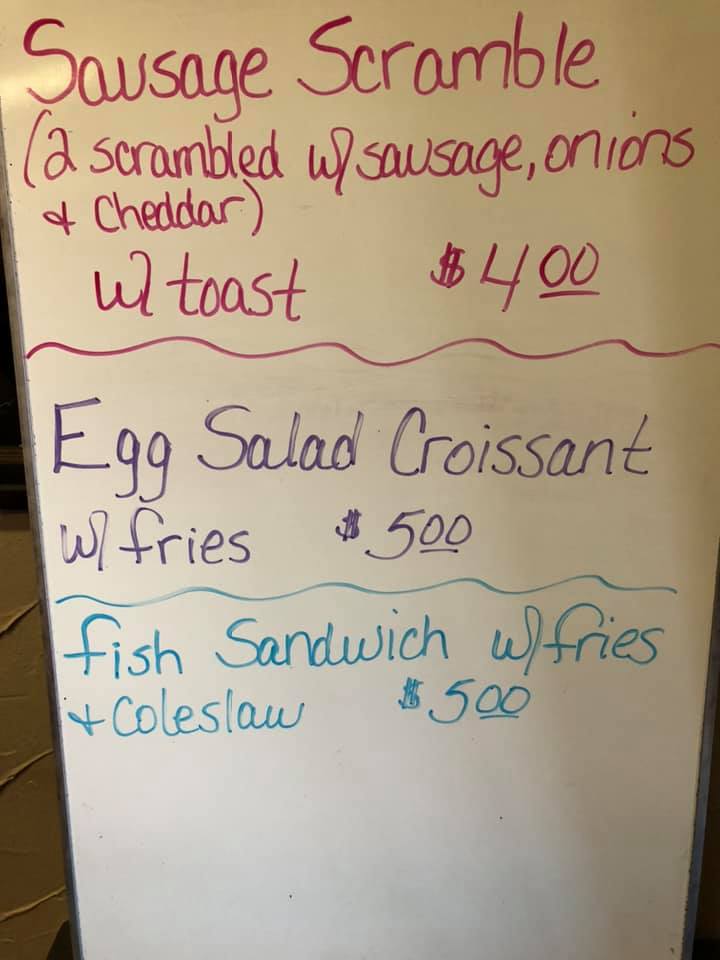 Sausage Scramble
(2 scrambled w/ sausage, onions
& Cheddar)
w/ toast $4.00
Egg Salad Croissant
w/ fries $500
fish Sandwich w/ fries
& Coleslaw $500